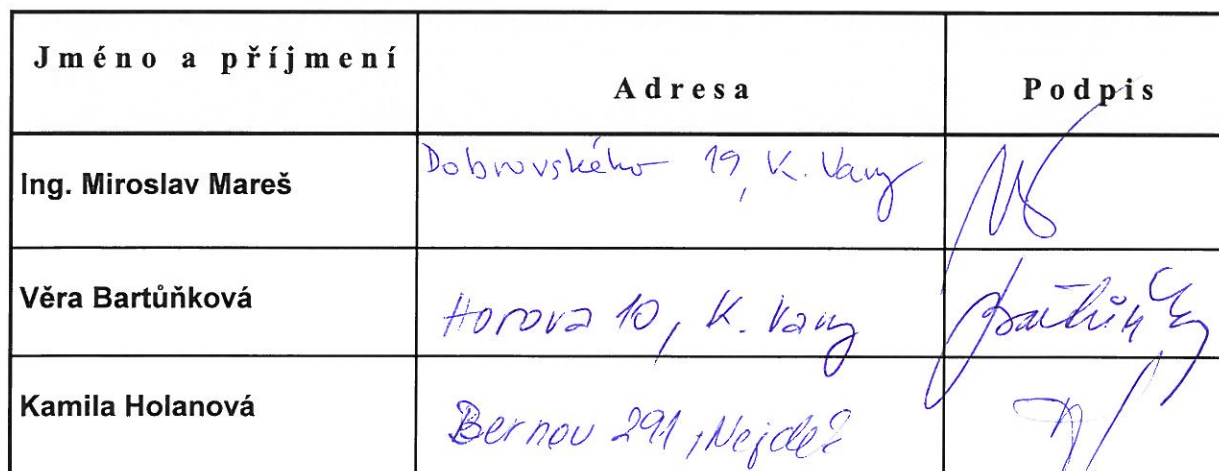 Jméno a příjmení
Adresa
Podpis
Ing. Miroslav Mareš
Dobrovského 19, K. Vary
Věra Bartůňková
Horova 10, K. Vary
Kamila Holanová
Bernov 291, Nejdek